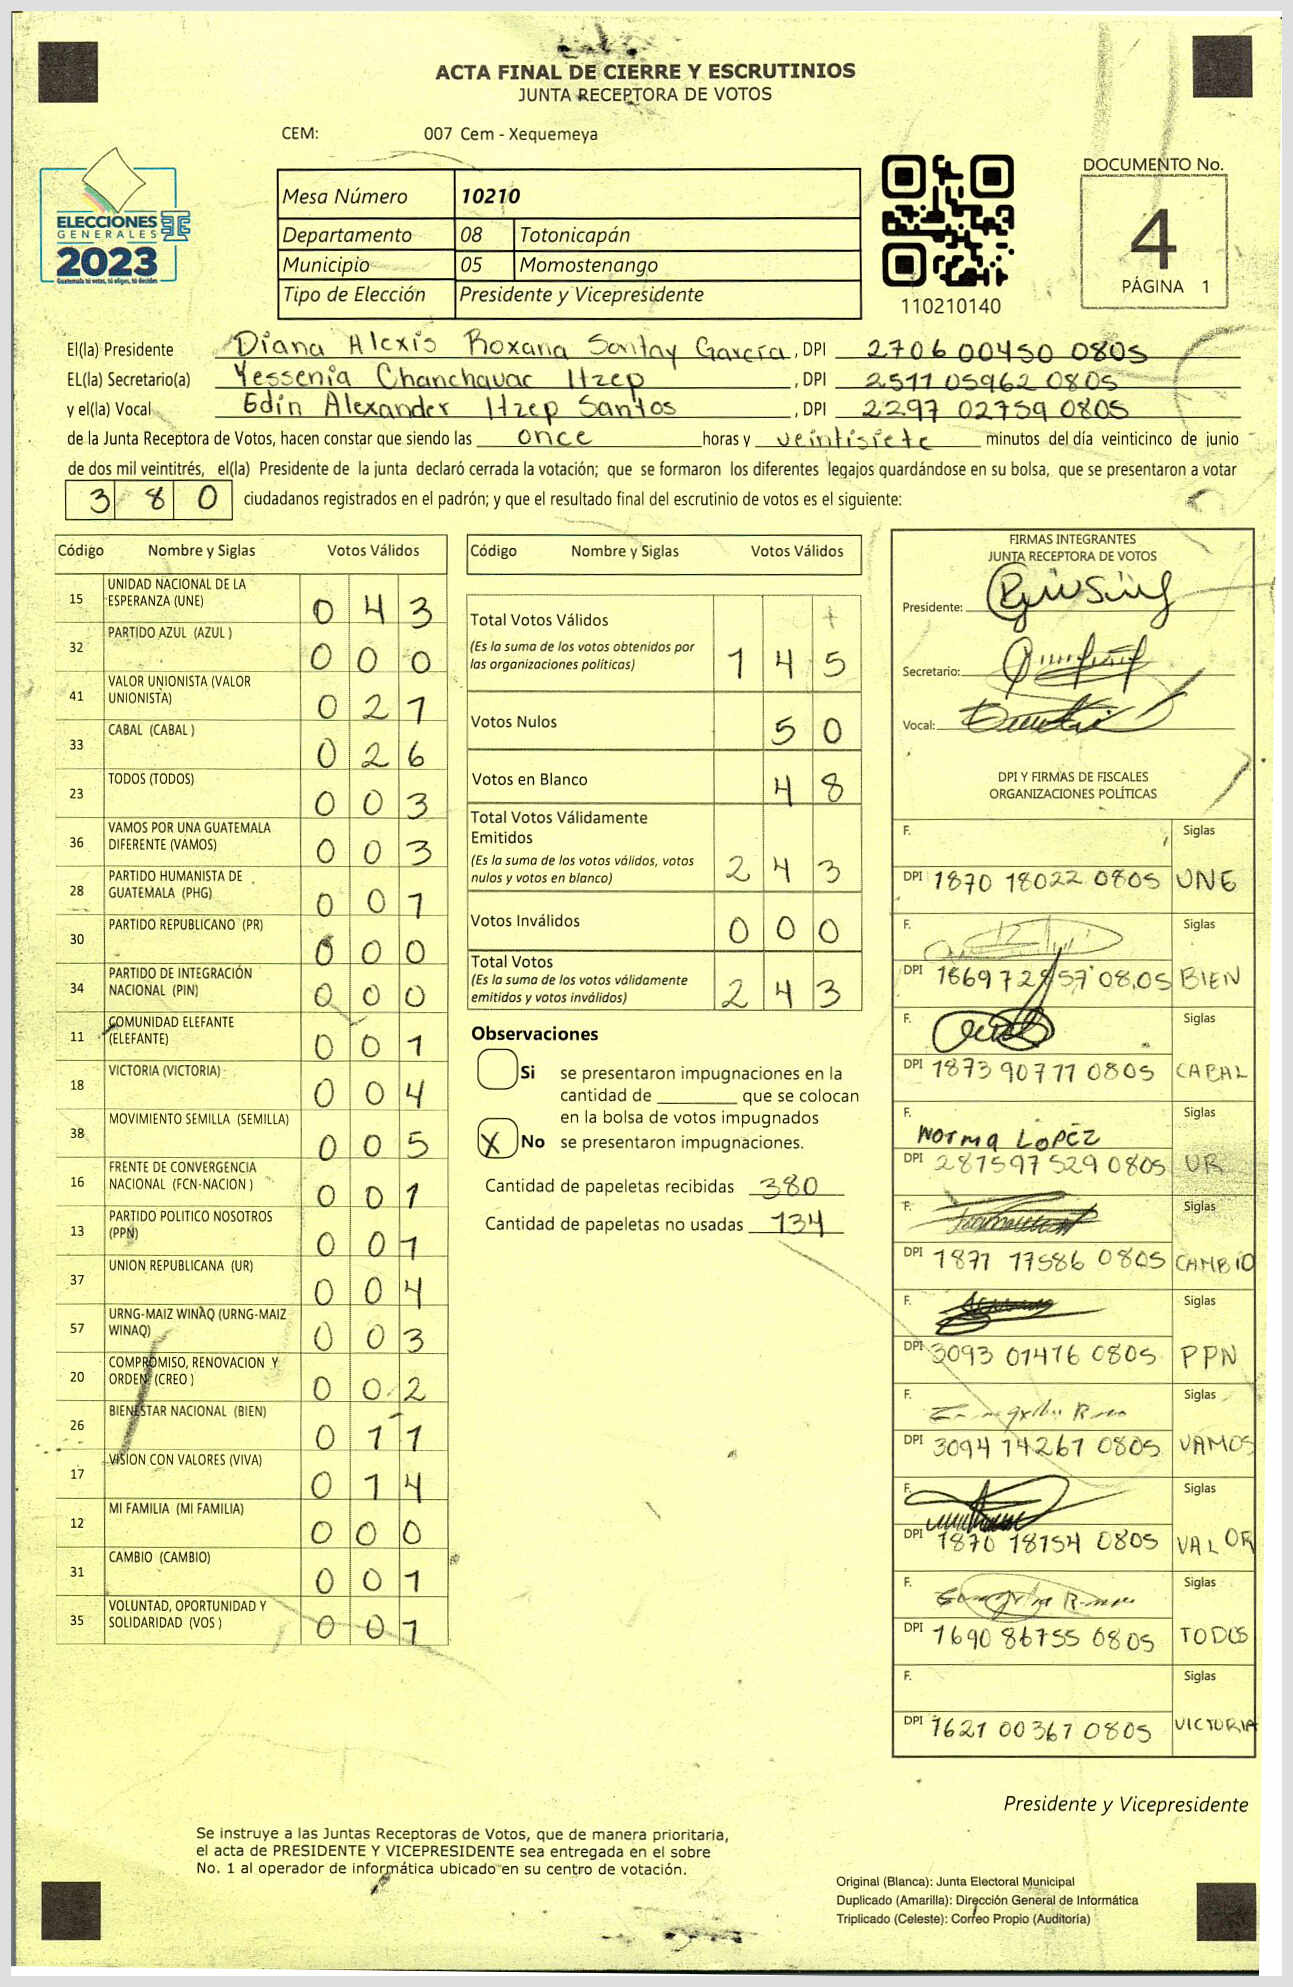 ACTA FINAL DE CIERRE Y ESCRUTINIOS
JUNTA RECEPTORA DE VOTOS
CEM: 007 Cem - Xequemeya
ELECCIONES
GENERALES
2023
Guatemala tú votas, tú eliges, tú decides
Mesa Número 10210
Departamento 08 Totonicapán
Municipio 05 Momostenango
Tipo de Elección Presidente y Vicepresidente
110210140
DOCUMENTO No.
4
PÁGINA 1
El(la) Presidente Diana Alexis Roxana Sontay García, DPI 2706 00450 0805
EL(la) Secretario(a) Yessenia Chanchavac Itzep, DPI 2511 05962 0805
y el(la) Vocal Edin Alexander Itzep Santos, DPI 2297 02759 0805
de la Junta Receptora de Votos, hacen constar que siendo las once horas y veintisiete minutos del día veinticinco de junio
de dos mil veintitrés, el(la) Presidente de la junta declaró cerrada la votación; que se formaron los diferentes legajos guardándose en su bolsa, que se presentaron a votar
3 8 0 ciudadanos registrados en el padrón; y que el resultado final del escrutinio de votos es el siguiente:
Código Nombre y Siglas Votos Válidos
15 UNIDAD NACIONAL DE LA
ESPERANZA (UNE) 0 4 3
32 PARTIDO AZUL (AZUL ) 0 0 0
41 VALOR UNIONISTA (VALOR
UNIONISTA) 0 2 1
33 CABAL (CABAL ) 0 2 6
23 TODOS (TODOS) 0 0 3
36 VAMOS POR UNA GUATEMALA
DIFERENTE (VAMOS) 0 0 3
28 PARTIDO HUMANISTA DE
GUATEMALA (PHG) 0 0 1
30 PARTIDO REPUBLICANO (PR) 0 0 0
34 PARTIDO DE INTEGRACIÓN
NACIONAL (PIN) 0 0 0
11 COMUNIDAD ELEFANTE
(ELEFANTE) 0 0 1
18 VICTORIA (VICTORIA) 0 0 4
38 MOVIMIENTO SEMILLA (SEMILLA) 0 0 5
16 FRENTE DE CONVERGENCIA
NACIONAL (FCN-NACION ) 0 0 1
13 PARTIDO POLITICO NOSOTROS
(PPN) 0 0 1
37 UNION REPUBLICANA (UR) 0 0 4
57 URNG-MAIZ WINAQ (URNG-MAIZ
WINAQ) 0 0 3
20 COMPROMISO, RENOVACION Y
ORDEN (CREO ) 0 0 2
26 BIENESTAR NACIONAL (BIEN) 0 1 1
17 VISION CON VALORES (VIVA) 0 1 4
12 MI FAMILIA (MI FAMILIA) 0 0 0
31 CAMBIO (CAMBIO) 0 0 1
35 VOLUNTAD, OPORTUNIDAD Y
SOLIDARIDAD (VOS ) 0 0 1
Código Nombre y Siglas Votos Válidos
Total Votos Válidos
(Es la suma de los votos obtenidos por
las organizaciones políticas) 1 4 5
Votos Nulos 5 0
Votos en Blanco 4 8
Total Votos Válidamente
Emitidos
(Es la suma de los votos válidos, votos
nulos y votos en blanco) 2 4 3
Votos Inválidos 0 0 0
Total Votos
(Es la suma de los votos válidamente
emitidos y votos inválidos) 2 4 3
Observaciones
Si se presentaron impugnaciones en la
cantidad de ________ que se colocan
en la bolsa de votos impugnados
X No se presentaron impugnaciones.
Cantidad de papeletas recibidas 380
Cantidad de papeletas no usadas 134
FIRMAS INTEGRANTES
JUNTA RECEPTORA DE VOTOS
Presidente:
Secretario:
Vocal:
DPI Y FIRMAS DE FISCALES
ORGANIZACIONES POLÍTICAS
F. Siglas
DPI 1870 18022 0805 UNE
F. Siglas
DPI 0805 BIEN
F. Siglas
DPI 1873 90711 0805 CABAL
F. Norma LOPEZ Siglas
DPI 2815 97529 0805 UR
F. Siglas
DPI 1871 17586 0805 CAMBIO
F. Siglas
DPI 3093 01416 0805 PPN
F. Siglas
DPI 3094 14267 0805 VAMOS
F. Siglas
DPI 1870 18154 0805 VALOR
F. Siglas
DPI 1690 86755 0805 TODOS
F. Siglas
DPI 1621 00367 0805 VICTORIA
Presidente y Vicepresidente
Se instruye a las Juntas Receptoras de Votos, que de manera prioritaria,
el acta de PRESIDENTE Y VICEPRESIDENTE sea entregada en el sobre
No. 1 al operador de informática ubicado en su centro de votación.
Original (Blanca): Junta Electoral Municipal
Duplicado (Amarilla): Dirección General de Informática
Triplicado (Celeste): Correo Propio (Auditoría)